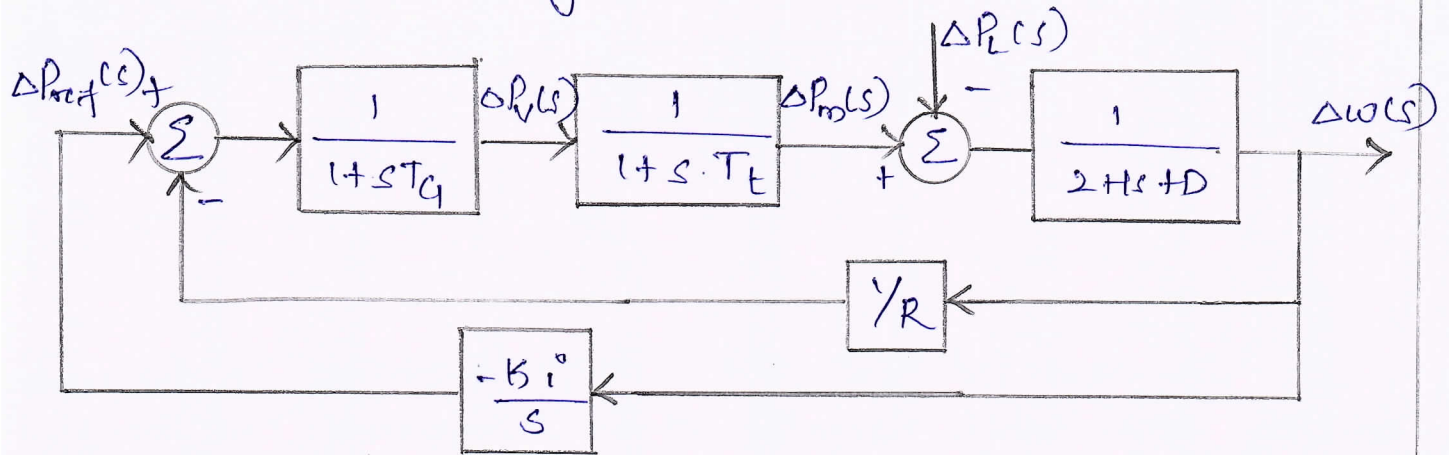 ΔP_L(s)
-
ΔP_ref(s) +
Σ
-
1
1+sT_G
ΔP_v(s)
1
1+s.T_t
ΔP_m(s)
+
Σ
1
2Hs+D
Δω(s)
1/R
-Ki
s